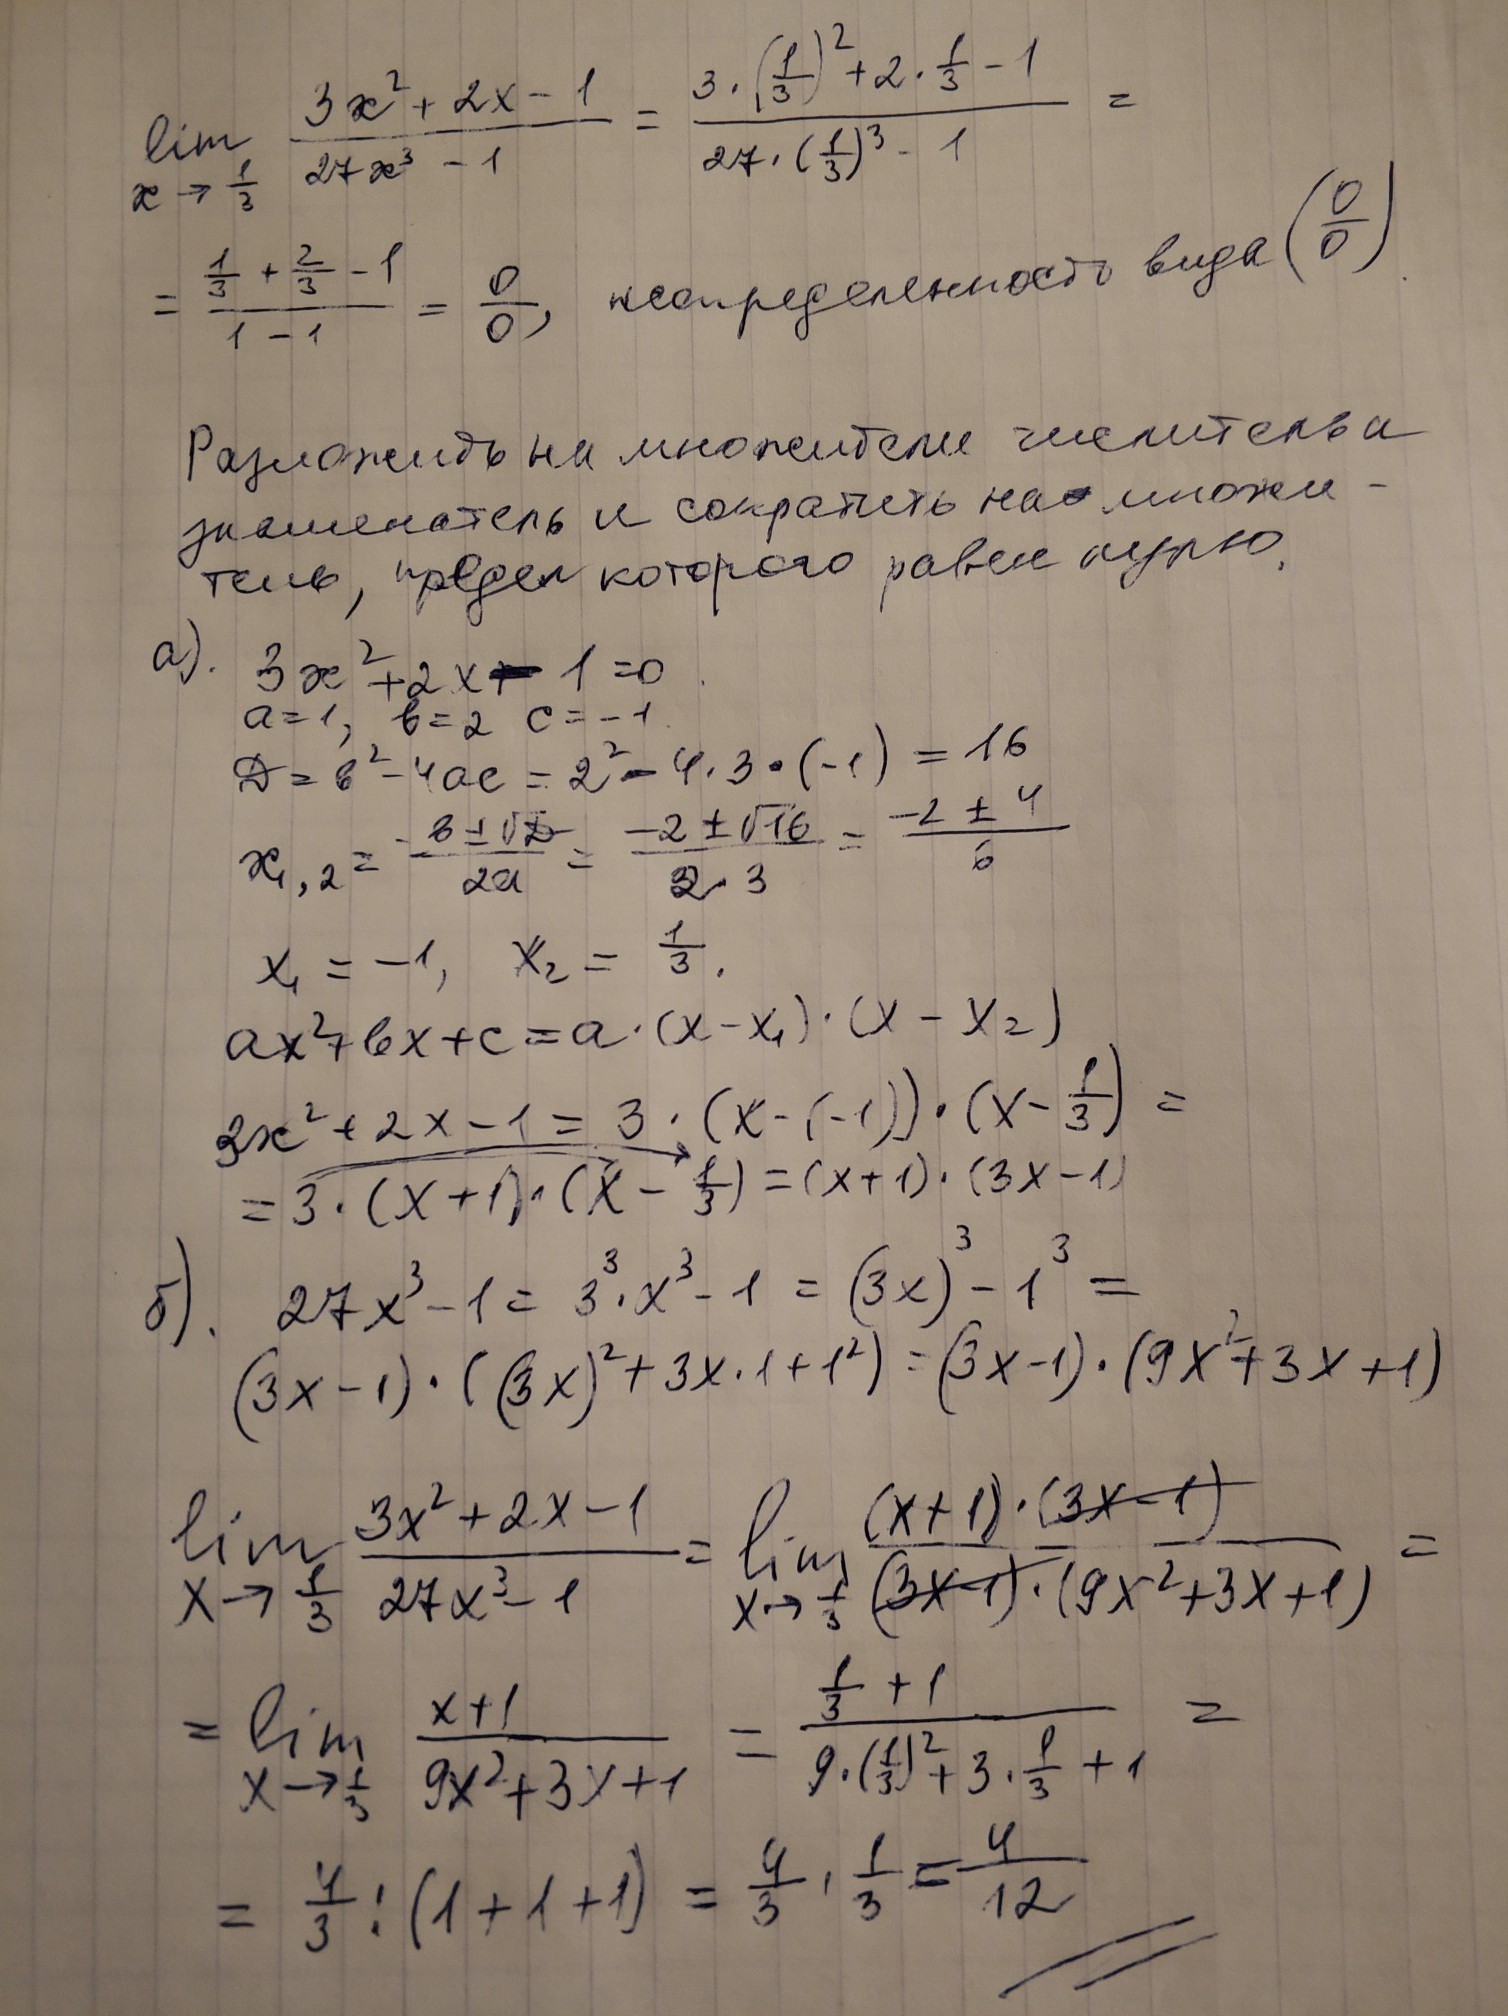 lim x→1/3 (3x² + 2x − 1)/(27x³ − 1) = (3·(1/3)² + 2·1/3 − 1)/(27·(1/3)³ − 1) =
= (1/3 + 2/3 − 1)/(1 − 1) = 0/0, неопределенность вида (0/0).
Разложить на множители числитель и
знаменатель и сократить на множи-
тель, предел которого равен нулю.
а). 3x² + 2x − 1 = 0.
a = 1, b = 2 c = −1.
D = b² − 4ac = 2² − 4·3·(−1) = 16
x₁,₂ = (−b ± √D)/(2a) = (−2 ± √16)/(2·3) = (−2 ± 4)/6
x₁ = −1, x₂ = 1/3.
ax² + bx + c = a·(x − x₁)·(x − x₂)
3x² + 2x − 1 = 3·(x − (−1))·(x − 1/3) =
= 3·(x + 1)·(x − 1/3) = (x + 1)·(3x − 1)
б). 27x³ − 1 = 3³·x³ − 1 = (3x)³ − 1³ =
(3x − 1)·((3x)² + 3x·1 + 1²) = (3x − 1)·(9x² + 3x + 1)
lim x→1/3 (3x² + 2x − 1)/(27x³ − 1) = lim x→1/3 ((x + 1)·(3x − 1))/((3x − 1)·(9x² + 3x + 1)) =
= lim x→1/3 (x + 1)/(9x² + 3x + 1) = (1/3 + 1)/(9·(1/3)² + 3·1/3 + 1) =
= 4/3 : (1 + 1 + 1) = 4/3 · 1/3 = 4/12